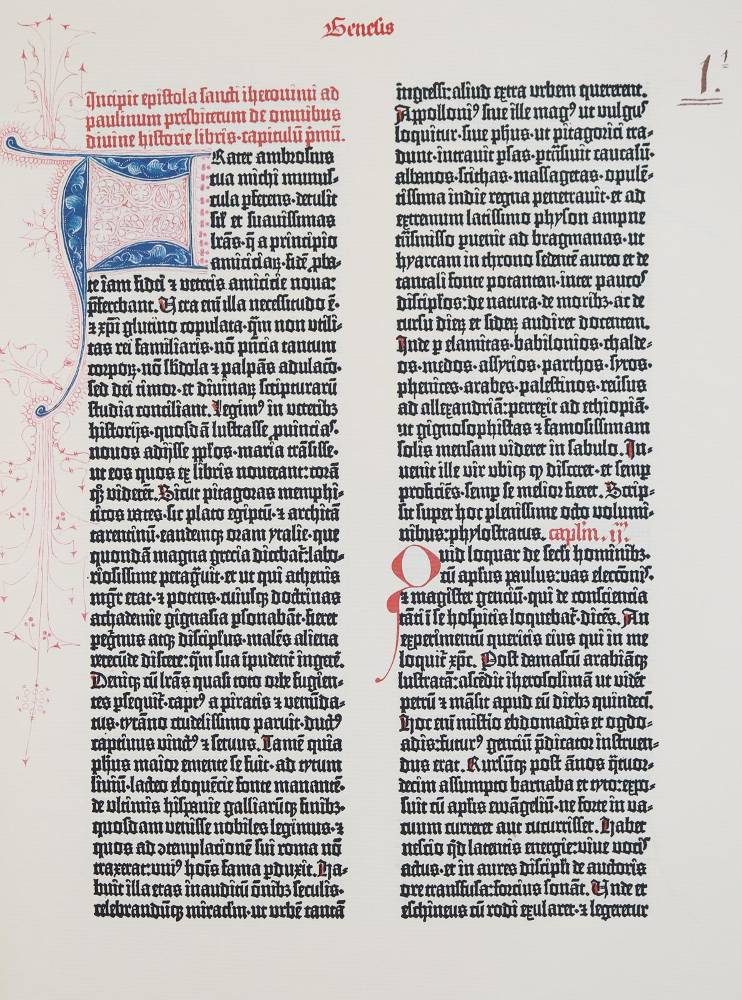 Genesis
1. 1
Incipit epistola sancti iheronimi ad
paulinum presbiterum de omnibus
divine historie libris·capitulū p̄mū.
Frater ambrosius
tua michi munus-
cula ꝑferens·detulit
sil̄ et suavissimas
lr̄as·q̄ a principio
amiciciaꝝ·fidē ꝓba-
te iam fidei ⁊ veteris amicicie nova:
p̄ferebant. Vera eni illa necessitudo ē·
⁊ xp̄i glutino copulata·q̄m non utili-
tas rei familiaris·nō pn̄cia tantum
corpoꝝ·nō sb̄dola ⁊ palpās adulacō·
sed dei timor·et divinaꝝ scripturarū
studia conciliant. Legimꝰ in veteribꝫ
historijs·quosdā lustrasse ꝓuinciaſ·
novos adijsse pp̄los·maria trāsisse·
ut eos quos ex libris noverant: corā
qꝫ viderēt. Sicut pitagoras memphi-
ticos vates·sic plato egiptū·⁊ architā
tarentinū·eandemqꝫ oram ytalie·que
quondā magna grecia dicebat̄: labo-
riosissime peragͣvit·et ut qui athenis
mgr̄ erat·⁊ potens·cuiusqꝫ doctrinas
achademie gignasia ꝑsonabāt·fieret
peg̊nus atqꝫ discipl̄us·malēs aliena
verecūde discere: q̄m sua īpudent̄ ingerē.
Deniqꝫ cū lr̄as quasi toto orbe fugien-
tes ꝑsequit̄·captꝰ a piratis ⁊ venūda-
tus·tyrāno crudelissimo paruit·ductꝰ
captivus vinctꝰ ⁊ servus. Tamē quia
ph̄us maior emente se fuit·ad tytum
livium·lacteo eloquēcie fonte manantē·
de ultimis hispanie galliarūqꝫ finibꝫ·
quosdam venisse nobiles legimus·⁊
quos ad ↄtemplacionē sui roma nō
traxerat: uniꝰ hoīs fama ꝑduxit. Ha-
buit illa etas inauditū oīnibꝫ seculis·
celebrandūqꝫ miraclm̄·ut urbē tantā
ingressi: aliud extra urbem quererent.
Appolloniꝰ sive ille magꝰ ut vulguſ
loquitur·sive ph̄us·ut pitagorici tra-
dunt·intravit ꝑsas·ꝑtn̄sivit caucasū·
albanos·scithas·massagetas·opulē-
tissima indie regna penetravit·et ad
extremum latissimo physon ampne
trāsmisso ꝑuenit ad bragmanas·ut
hyarcam in throno sedentē aureo et de
tantali fonte potantem·inter paucoſ
discipl̄os: de natura·de moribꝫ·ac de
cursu dierꝫ et sideꝝ audiret docentem.
Inde ꝑ elamitas·babilonios·chalde-
os·medos·assyrios·parthos·syros·
phenices·arabes·palestinos·reūsus
ad allexandriā: perrexit ad ethiopiā·
ut gignosophistas ⁊ famosissimam
solis mensam videret in sabulo. In-
venit ille vir ubiqꝫ qͦ disceret·et semꝑ
proficiēs·semꝑ se melior fieret. Scrip-
sit super hoc plenissime octo volumi-
nibus: phylostratus. capl̄m. ij·
Quid loquar de secli hominibꝫ·
cū apl̄us paulus: vas electōniſ·
⁊ magister genciū·qui de consciencia
tāti ī se hospitis loquebat̄·dicēs. An
experimentū queritis eius qui in me
loquit̄ xp̄c. Post damascū arabiāqꝫ
lustratā: ascēdit iherosolimā ut videt
petrū ⁊ māsit apud eū diebꝫ quindeci.
Hoc enī misterio ebdomadis et ogdo-
adis: futurꝰ genciū p̄dicator instruen-
dus erat. Rursūqꝫ post ānos q̄tuor-
decim assumpto barnaba et tyto: expo-
suit cū apl̄is ewāgeliū·ne forte in va-
cuum curreret aut cucurrisset. Habet
nescio qͥd latentis energie: vive vociſ
actus·et in aures discipl̄i de auctoris
ore transfusa: forcius sonāt. Unde et
eschineus cū rodi exularet·⁊ legeretur